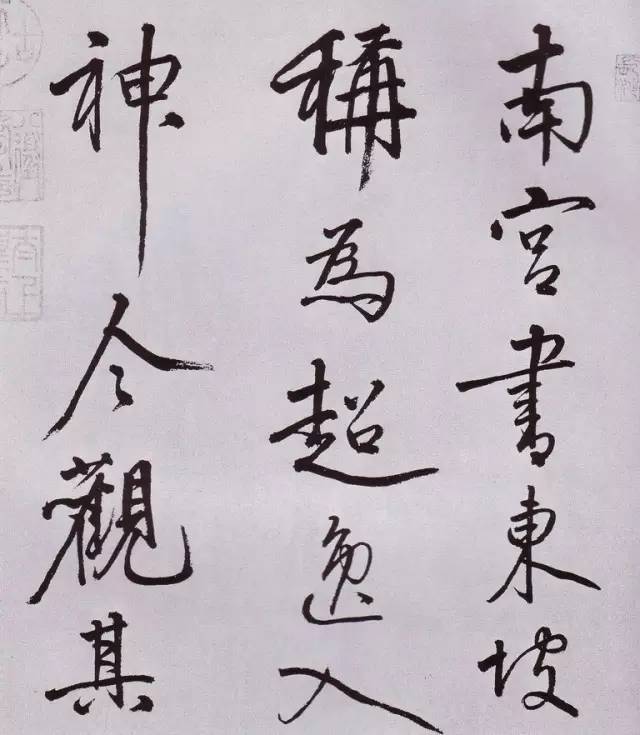 南宫書東坡
稱為超逸入
神今觀其